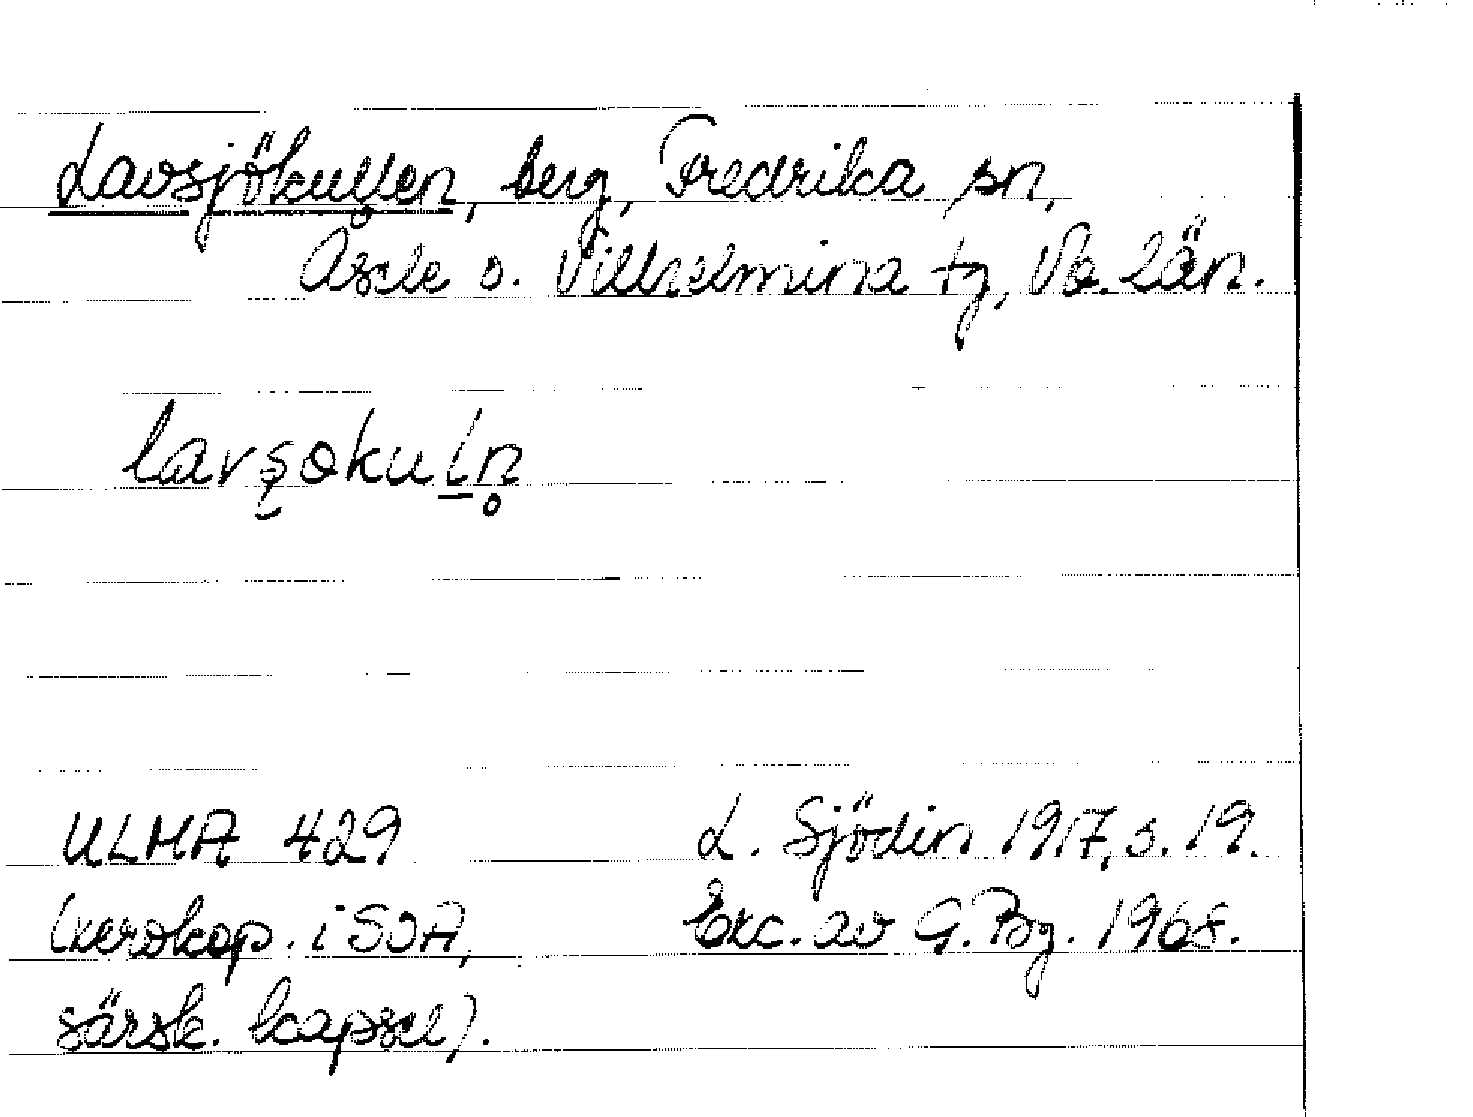 Lavsjökullen, berg, Fredrika sn,
Åsele o. Vilhelmina tg, Vb. län.
lavʂokuln̥
ULMA 429
L. Sjödin 1917, s. 19.
(xerokop. i SOA,
Exc. av G. Bg. 1968.
särsk. kapsel).